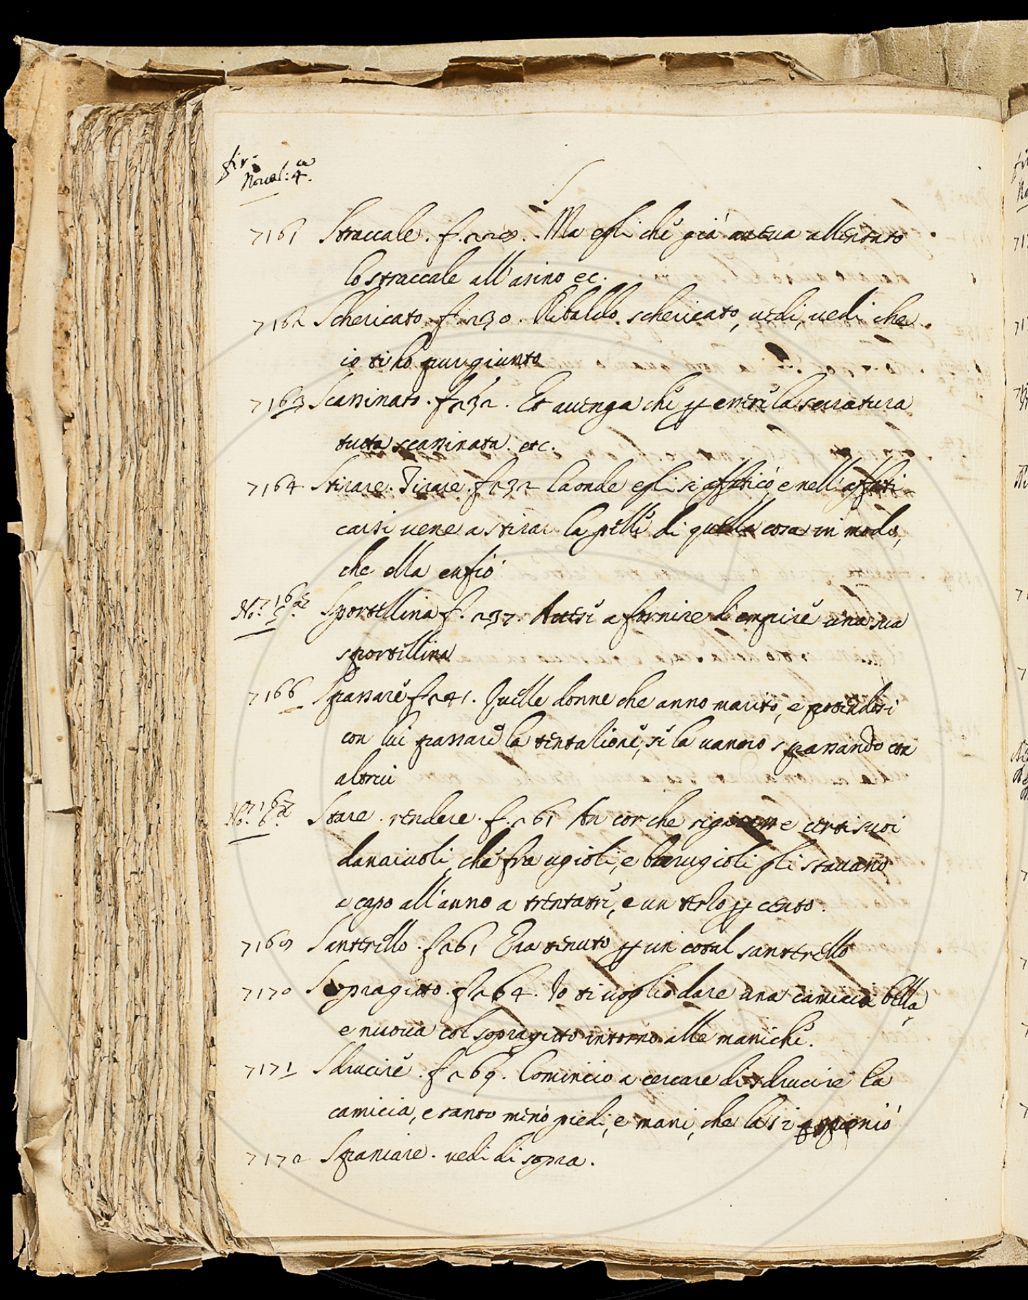 fir.
Novel: 4.ta
S
7161 Straccale. f. 228. Ma egli che già avea allentato
lo straccale all'asino ec.
7162 Schericato. f. 230. Ribaldo schericato, vedi, vedi che
io ti ho pur giunto
7163 Scassinato. f. 232. Et avenga che p essere la serratura
tutta scassinata. etc.
7164 Stirare. Tirare. f. 232 laonde egli si affaticò, e nell'affati
carsi venne a stirar la pelle di quella cosa in modo,
che ella enfiò
7165 Sportellina f. 237. Attese a fornire d'empire una sua
sportellina
7166 Spassare f. 241. Quelle donne che anno marito, e potendosi
con lui passare la tentatione, si la vanno spassando con
altrui
7167 Stare. rendere. f. 261 Ancorche certi suoi
danaiuoli che fra ugioli, e barugioli gli stavano
a capo all'anno a trentatre, e un terlo p cento.
7169 Santerello. f. 261 Era tenuto p un cotal santerello
7170 Sopragitto. f. 264. Io ti voglio dare una camicia bella,
e nuova col sopragitto intorno alle maniche.
7171 Sdrucire. f. 269. Cominciò a cercare di sdrucire la
camicia, e tanto menò piedi, e mani, che la si
7172 Spaniare. vedi di sopra.